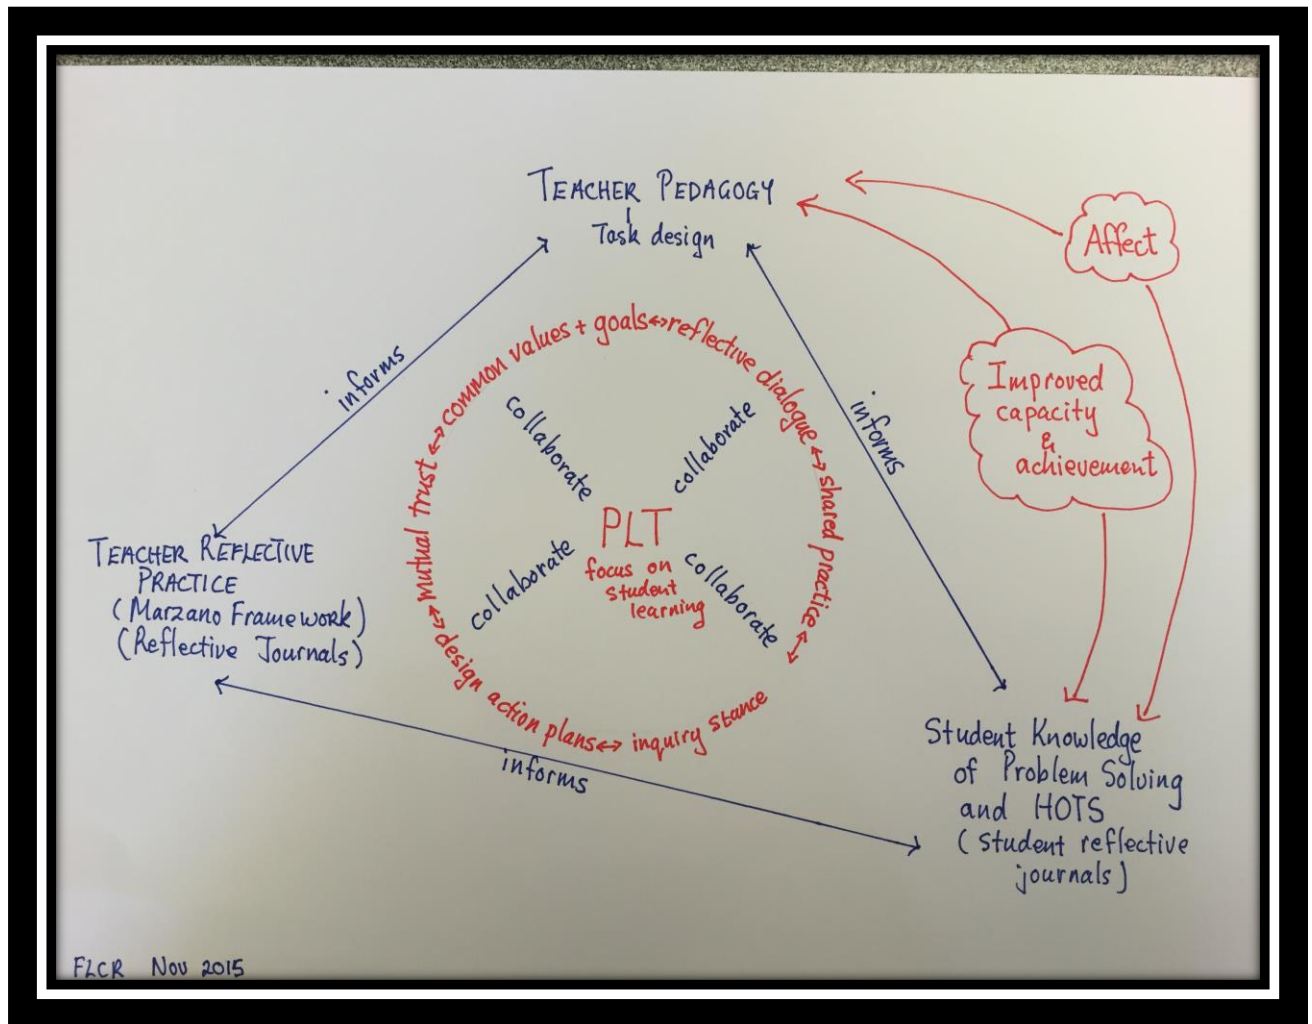 TEACHER PEDAGOGY
Task design
Affect
Improved
capacity
&
achievement
informs
informs
informs
common values + goals ↔ reflective dialogue ↔ shared practice ↔ inquiry stance ↔ design action plans ↔ mutual trust ↔
collaborate
collaborate
collaborate
collaborate
PLT
focus on
student
learning
TEACHER REFLECTIVE
PRACTICE
(Marzano Framework)
(Reflective Journals)
Student Knowledge
of Problem Solving
and HOTS
(student reflective
journals)
FLCR Nov 2015